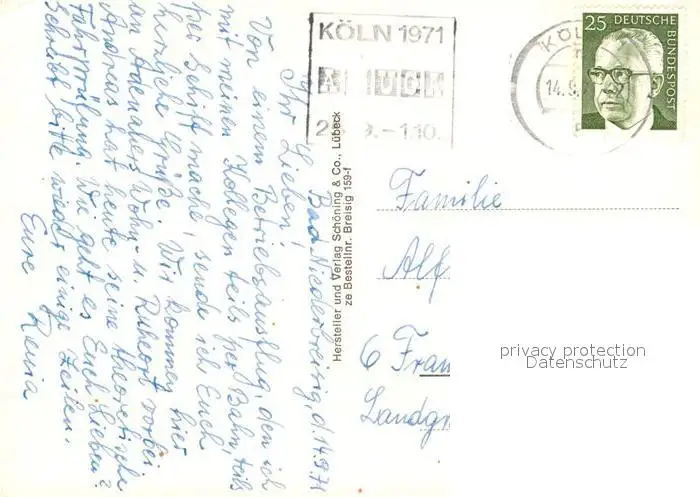 Bad Niederbreisig, d. 14.9.71
Ihr Lieben!
Von einem Betriebsausflug, den ich
mit meinen Kollegen teils per Bahn, teils
per Schiff mache, sende ich Euch
herzliche Grüße. Wir kommen hier
an Adenauers Wohn- u. Ruheort vorbei.
Andreas hat heute seine theoretische
Fahrprüfung. Wie geht es Euch Lieben?
Schreibt bitte wieder einige Zeilen.
Eure
Hersteller und Verlag Schöning & Co., Lübeck
ze Bestellnr. Breisig 159-f
KÖLN 1971
.-1.10.
KÖL
14.9.
25 DEUTSCHE BUNDESPOST
Familie
Alf
6 Fran
Landg
privacy protection
Datenschutz